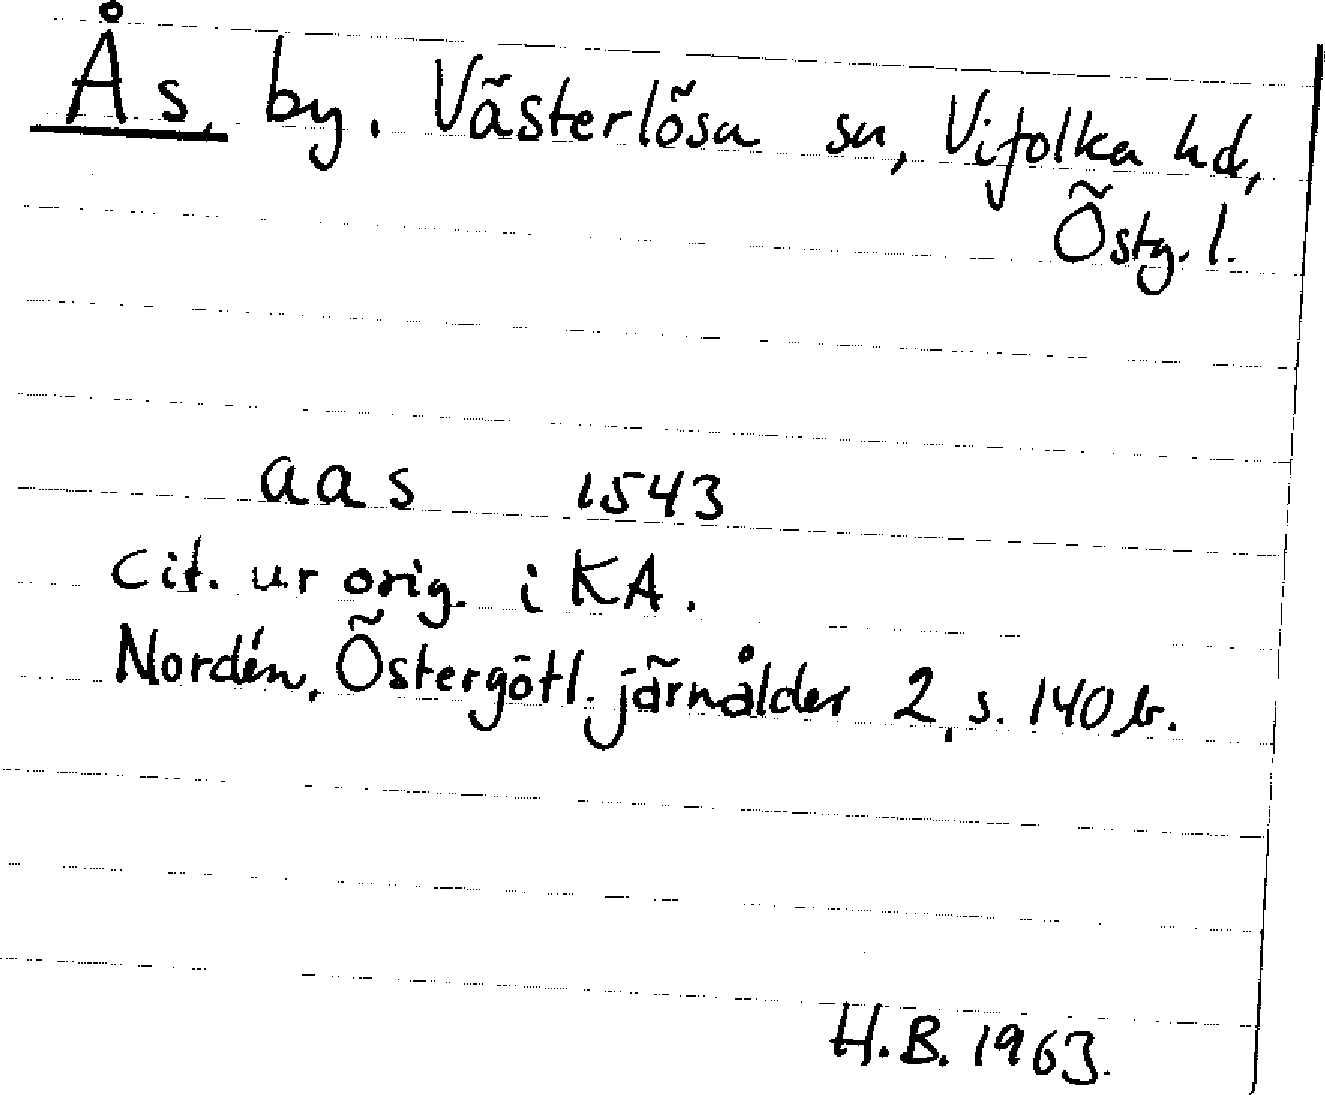 Ås, by. Västerlösa sn, Vifolka hd,
Östg. l.
aas 1543
cit. ur orig. i KA.
Nordén, Östergötl. järnålder 2, s. 140 b.
H.B. 1963.